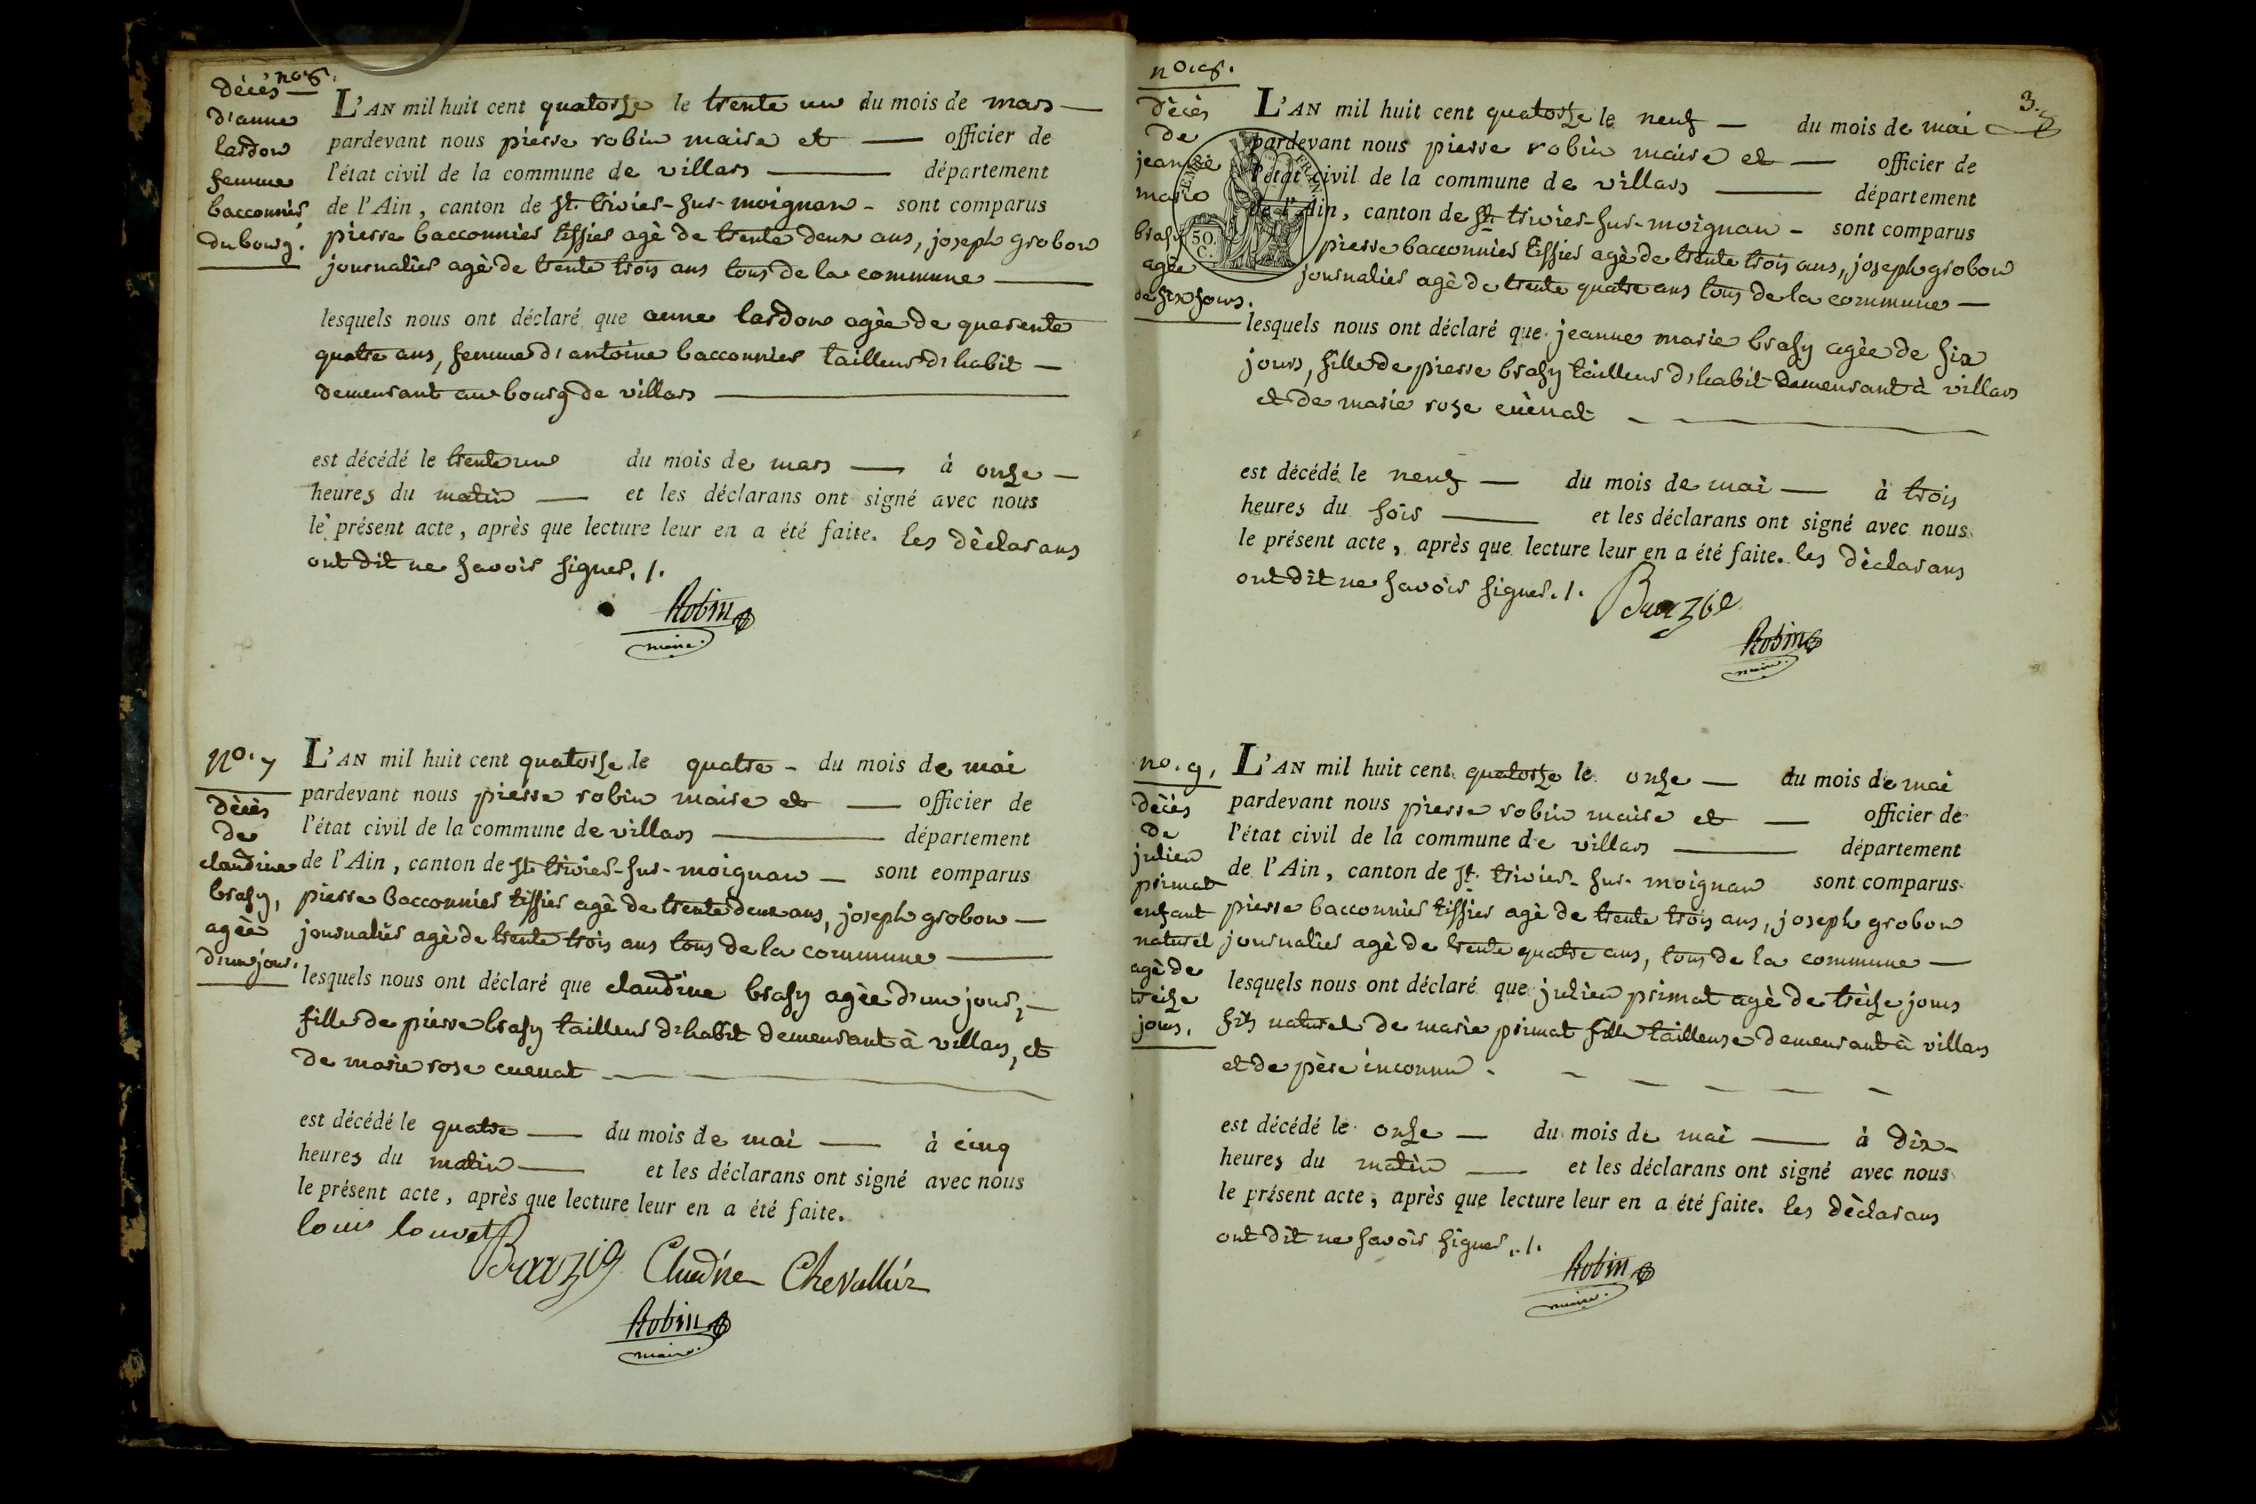 no. 6.
décès
d'anne
lardon
femme
bacconnier
du bourg.
L'AN mil huit cent quatorze le trente un du mois de mars
pardevant nous pierre robin maire et officier de
l'état civil de la commune de villars département
de l'Ain, canton de st. trivier-sur-moignan - sont comparus
pierre bacconnier tissier agè de trente deux ans, joseph grobon
journalier agè de trente trois ans tous de la commune
lesquels nous ont déclaré que anne lardon agèe de quarente
quatre ans, femme d'antoine bacconnier tailleur d'habit
demeurant au bourg de villars
est décédé le trente un du mois de mars à onze
heures du matin et les déclarans ont signé avec nous
le présent acte, après que lecture leur en a été faite. les dèclarans
ont dit ne savoir signer. /.
Robin
maire.
no. 7
dècès
de
claudine
brasy,
agèe
d'un jour.
L'AN mil huit cent quatorze le quatre - du mois de mai
pardevant nous pierre robin maire et officier de
l'état civil de la commune de villars département
de l'Ain, canton de st trivier-sur-moignan - sont comparus
pierre bacconnier tissier agè de trente deux ans, joseph grobon
journalier agè de trente trois ans tous de la commune
lesquels nous ont déclaré que claudine brasy agèe d'un jour,
fille de pierre brasy tailleur d'habit demeurant à villars, et
de marie rose cuenat
est décédé le quatre du mois de mai à cinq
heures du matin et les déclarans ont signé avec nous
le présent acte, après que lecture leur en a été faite.
louis louvet
Chevallier
Robin
maire.
3.
no. 8.
dècès
de
jeanne
marie
brasy
agèe
de six jours.
50.
C.
L'AN mil huit cent quatorze le neuf du mois de mai
pardevant nous pierre robin maire et officier de
l'état civil de la commune de villars département
de l'Ain, canton de st. trivier-sur-moignan - sont comparus
pierre bacconnier tissier agè de trente trois ans, joseph grobon
journalier agè de trente quatre ans tous de la commune
lesquels nous ont déclaré que jeanne marie brasy agèe de six
jours, fille de pierre brasy tailleur d'habit demeurant à villars
et de marie rose cuènat
est décédé le neuf du mois de mai à trois
heures du soir et les déclarans ont signé avec nous
le présent acte, après que lecture leur en a été faite. les dèclarans
ont dit ne savoir signer. /.
Robin
maire.
no. 9,
dècès
de
julien
primat
enfant
naturel
agè de
treize
jours.
L'AN mil huit cent quatorze le onze du mois de mai
pardevant nous pierre robin maire et officier de
l'état civil de la commune de villars département
de l'Ain, canton de st. trivier-sur-moignan sont comparus
pierre bacconnier tissier agè de trente trois ans, joseph grobon
journalier agè de trente quatre ans, tous de la commune
lesquels nous ont déclaré que julien primat agè de trèize jours
fils naturel de marie primat fille tailleuse demeurant à villars
et de père inconnu.
est décédé le onze du mois de mai à dix
heures du matin et les déclarans ont signé avec nous
le présent acte, après que lecture leur en a été faite. les dèclarans
ont dit ne savoir signer. /.
Robin
maire.